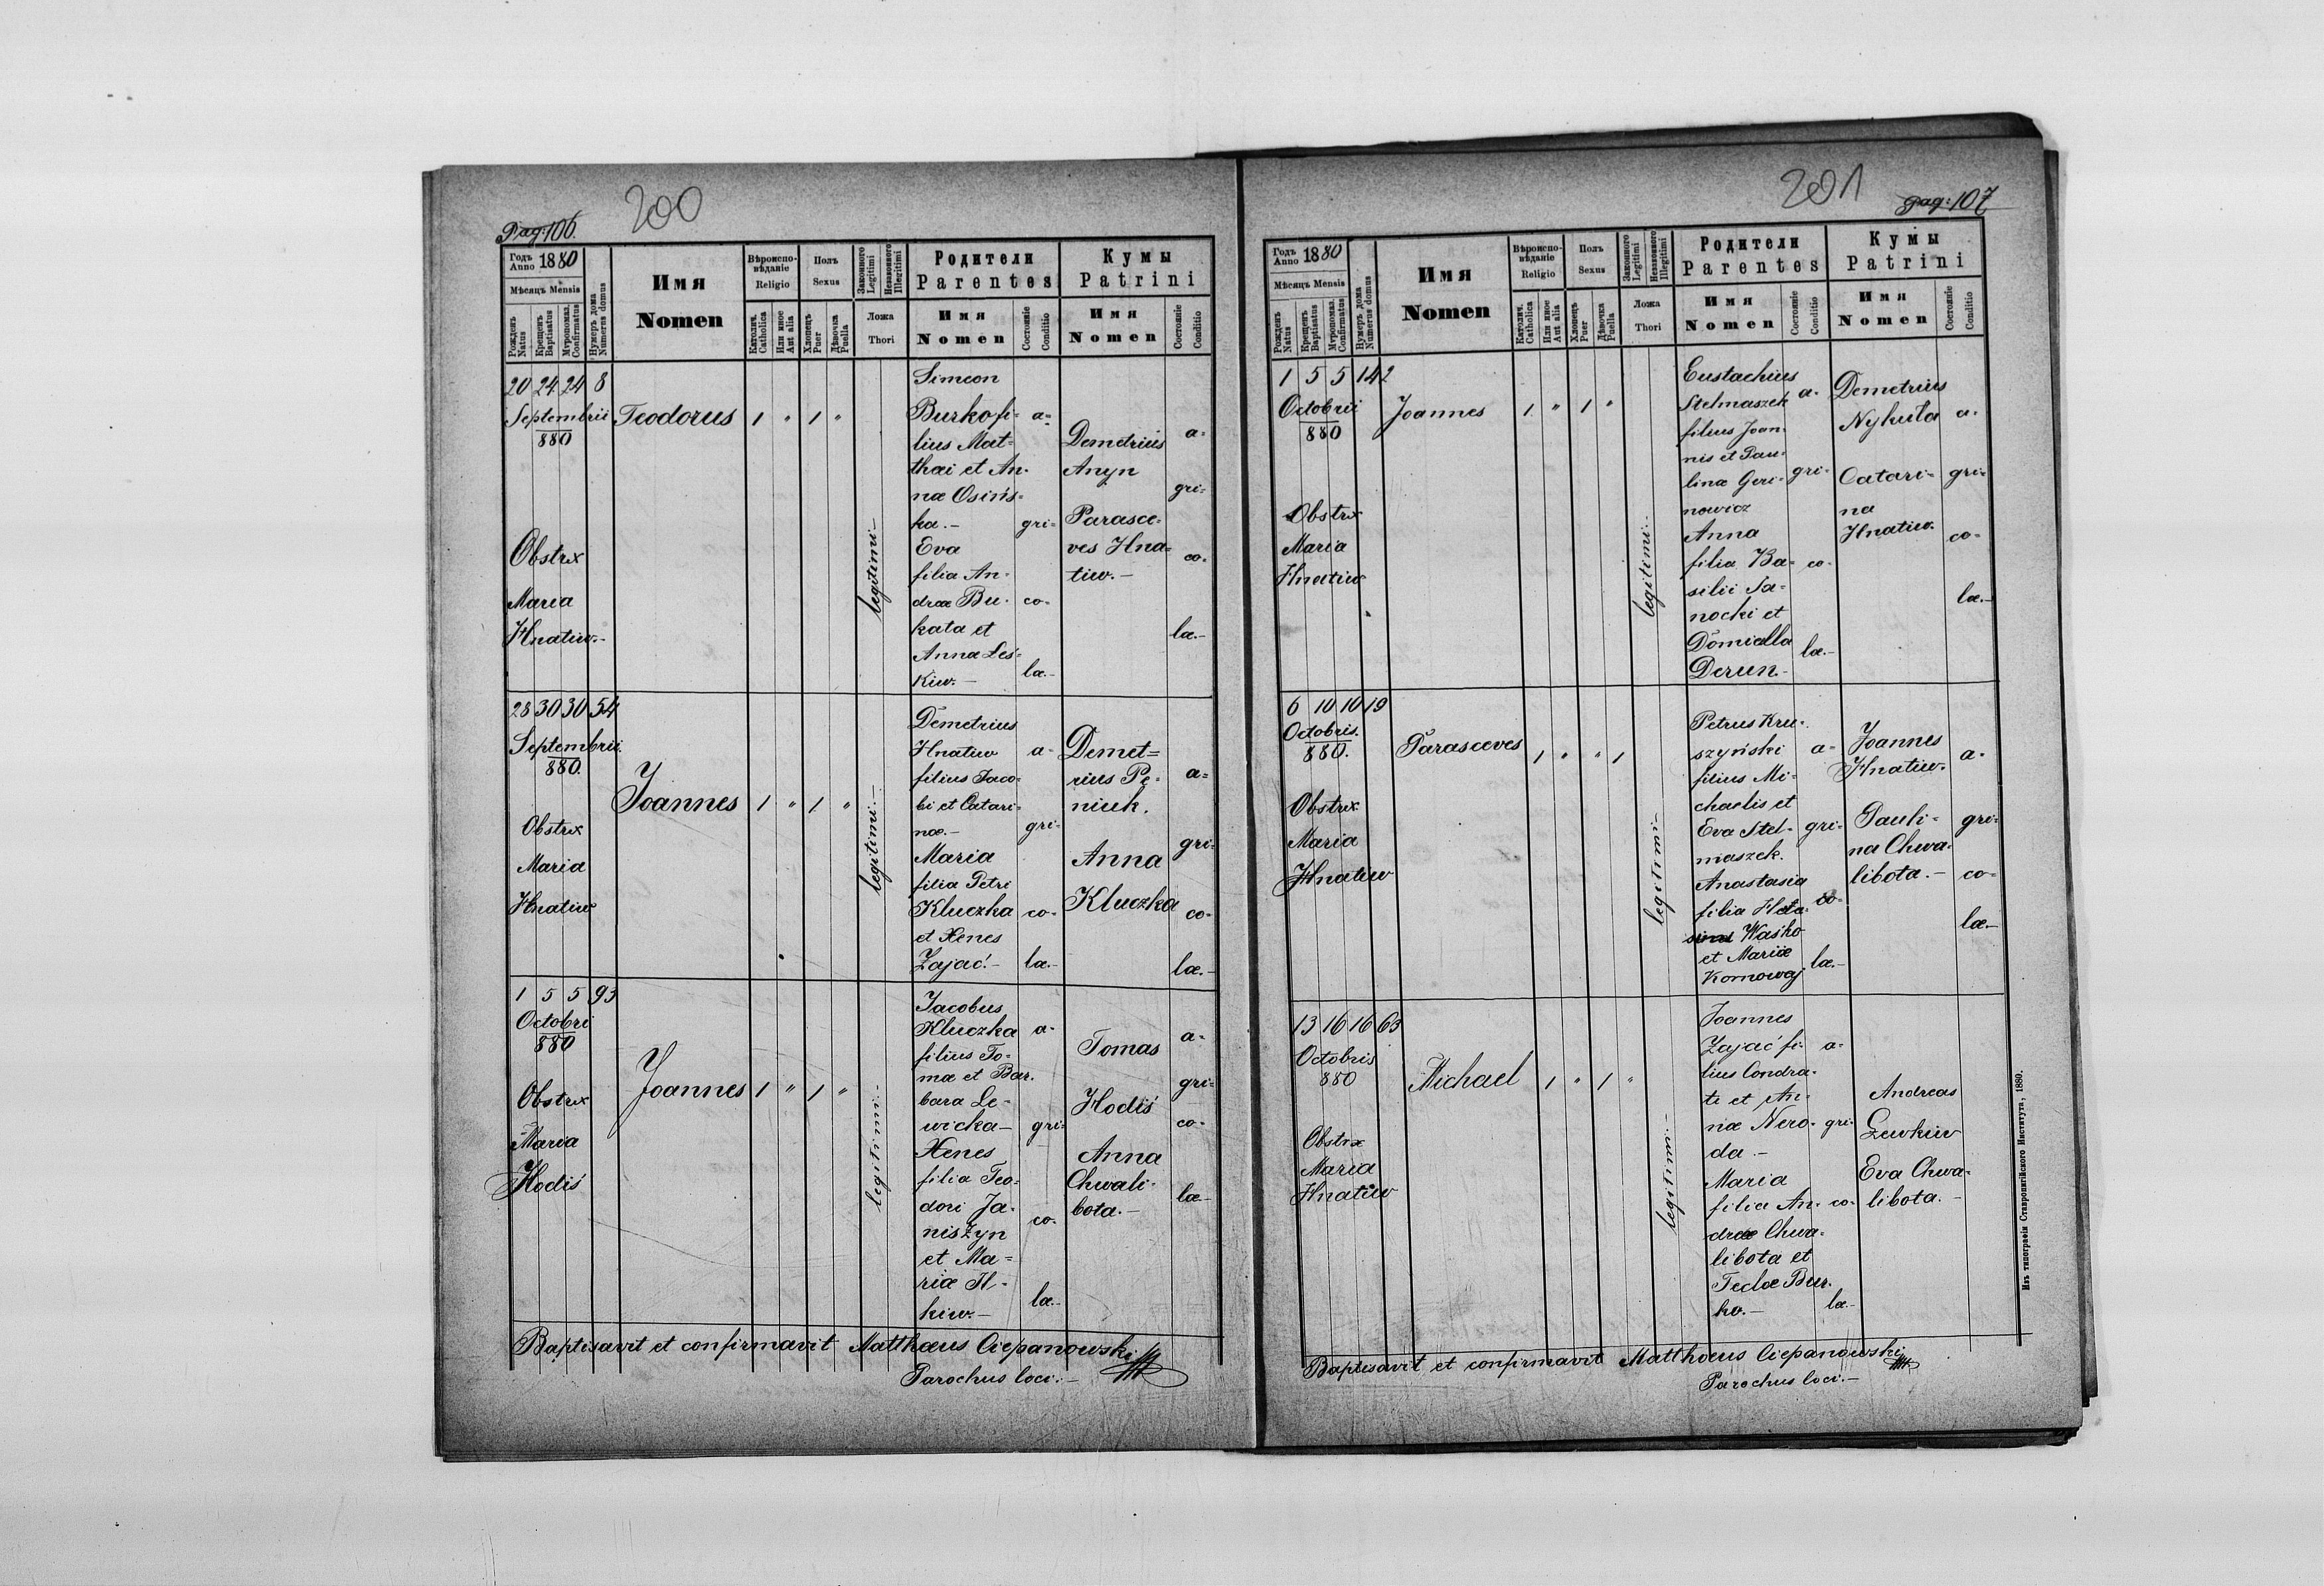 Pag: 106.
200
Годъ Anno 1880
Мѣсяцъ Mensis
Рожденъ Natus
Крещенъ Baptisatus
Мѵропомаз. Confirmatus
Нумеръ дома Numerus domus
Имя
Nomen
Вѣроиспо-
вѣданіе
Religio
Католич. Catholica
Или иное Aut alia
Полъ
Sexus
Хлопецъ Puer
Дѣвочка Puella
Законного Legitimi
Незаконного Illegitimi
Ложа
Thori
Родители
Parentes
Имя
Nomen
Состояніе Conditio
Кумы
Patrini
Имя
Nomen
Состояніе Conditio
20 24 24 8
Septembrii
880
Obstrx
Maria
Hnatiw.-
Teodorus
1 " 1 "
legitimi.-
Simeon
Burko fi=
lius Mat=
thai et An-
næ Osińs=
ka.-
Eva
filia An-
dreæ Bu-
kata et
Anna Leś=
kiw.-
a=
gri=
co-
læ.-
Demetrius
Anyn
Parasce=
ves Hna=
tiw.-
a-
gri=
co-
læ.-
28 30 30 54
Septembrii.
880.
Obstrx
Maria
Hnatiw
Joannes
1 " 1 "
legitimi.-
Demetrius
Hnatiw
filius Jaco-
bi et Catari=
næ.-
Maria
filia Petri
Kluczka
et Xenes
Zajać.-
a-
gri-
co-
læ.-
Demet=
rius Pę-
niuk.
Anna
Kluczka
a=
gri-
co-
læ.-
1 5 5 93
Octobri
880
Obstrx
Maria
Hodiś
Joannes
1 " 1 "
legitimi.-
Jacobus
Kluczka
filius To-
mæ et Bar-
bara Le-
wicka-
Xenes
filia Teo-
dori Ja-
niszyn
et Ma=
riæ Il-
kiw.-
a-
gri-
co-
læ.-
Tomas
Hodiś
Anna
Chwali-
bota.-
a-
gri-
co-
læ-
Baptisavit et confirmavit Matthæus Ciepanowski
Parochus loci.-
201
Pag: 107
Годъ Anno 1880
Мѣсяцъ Mensis
Рожденъ Natus
Крещенъ Baptisatus
Мѵропомаз. Confirmatus
Нумеръ дома Numerus domus
Имя
Nomen
Вѣроиспо-
вѣданіе
Religio
Католич. Catholica
Или иное Aut alia
Полъ
Sexus
Хлопецъ Puer
Дѣвочка Puella
Законного Legitimi
Незаконного Illegitimi
Ложа
Thori
Родители
Parentes
Имя
Nomen
Состояніе Conditio
Кумы
Patrini
Имя
Nomen
Состояніе Conditio
1 5 5 142
Octobrii
880
Obstrx
Maria
Hnatiw
Joannes
1 " 1 "
legitimi.-
Eustachius
Stelmaszek
filius Joan-
nis et Pau-
lina Geri-
nowicz
Anna
filia Ba-
silii Sa-
nocki et
Domicella
Derun.-
a-
gri-
co-
læ.-
Demetrius
Nykuła
Catari=
na
Hnatiw.
a-
gri=
co-
læ.-
6 10 10 19
Octobris.
880.
Obstrx
Maria
Hnatiw
Parasceves
1 " " 1
legitimi-
Petrus Kru-
szyński
filius Mi-
chaelis et
Eva Stel-
maszek.
Anastasia
filia
Waśko
et Mariæ
Komowaj
a-
gri-
co-
læ.-
Joannes
Hnatiw.
Pauli-
na Chwa-
libota.-
a-
gri-
co-
læ.-
13 16 16 63
Octobris
880
Obstrx
Maria
Hnatiw
Michael
1 " 1 "
legitimi.-
Joannes
Zajać fi-
lius Condra-
ti et An-
næ Nero-
da.-
Maria
filia An-
dreæ Chwa-
libota et
Teclæ Bur-
ko.-
a-
gri-
co-
læ.-
Andreas
Lewkiw
Eva Chwa-
libota.-
Baptisavit et confirmavit Matthæus Ciepanowski
Parochus loci.-
Изъ типографіи Ставропигійского Института, 1880.